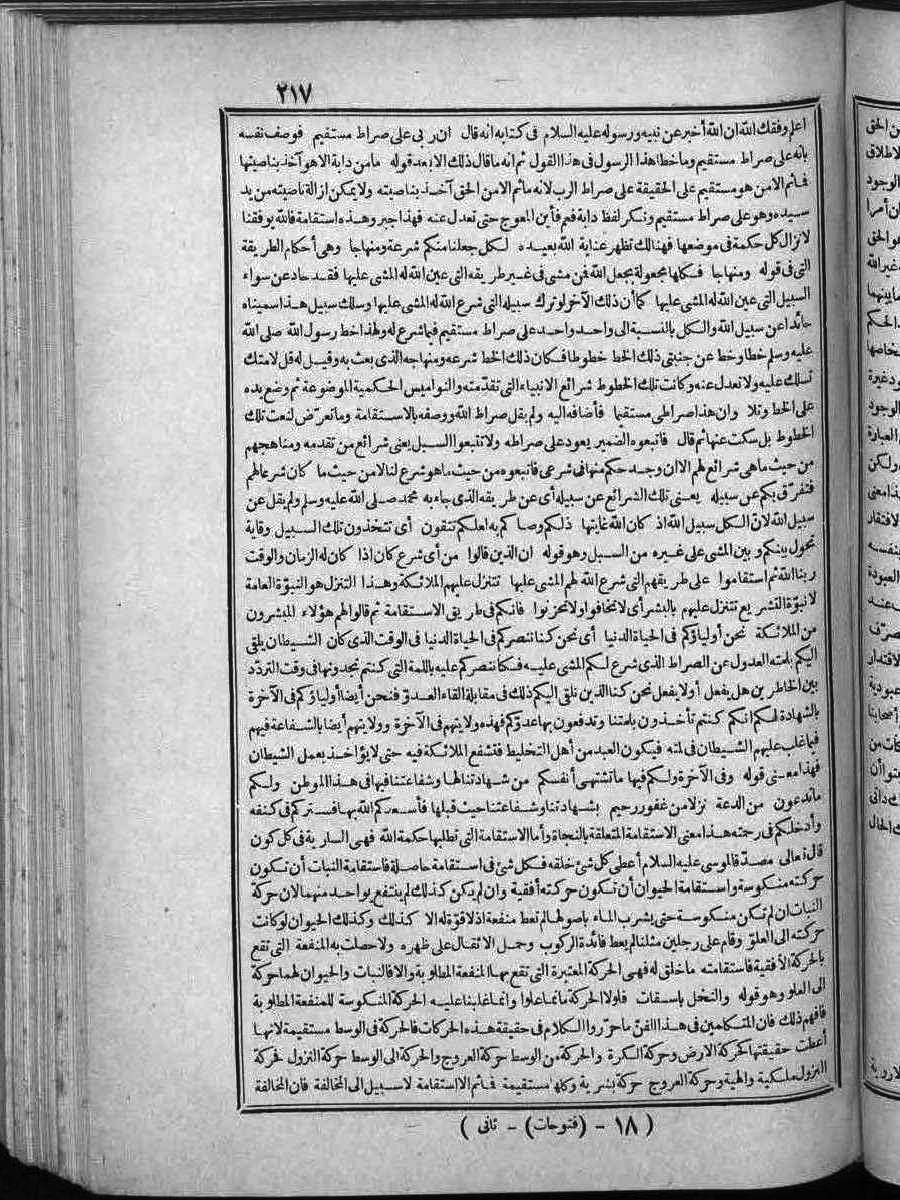 ٢١٧
اعلم وفقك الله ان الله أخبر عن نبيه ورسوله عليه السلام فى كتابه انه قال ان ربى على صراط مستقيم فوصف نفسه
بانه على صراط مستقيم وما خطأ هذا الرسول فى هذا القول ثم انه ما قال ذلك الا بعد قوله ما من دابة الا هو آخذ بناصيتها
فما ثم الا من هو مستقيم على الحقيقة على صراط الرب لانه ما ثم الا من الحق آخذ بناصيته ولا يمكن ازالة ناصيته من يد
سيده وهو على صراط مستقيم ونكر لفظ دابة فعم فأين المعوج حتى تعدل عنه فهذا جبر وهذه استقامة فالله يوفقنا
لانزال كل حكمة فى موضعها فهنالك تظهر عناية الله بعبده لكل جعلنا منكم شرعة ومنهاجا وهى أحكام الطريقة
التى فى قوله ومنهاجا فكلها مجعولة بجعل الله فمن مشى فى غير طريقه التى عين الله له المشى عليها فقد حاد عن سواء
السبيل التى عين الله له المشى عليها كما أن ذلك الآخر لو ترك سبيله التى شرع الله له المشى عليها وسلك سبيل هذا سميناه
حائدا عن سبيل الله والكل بالنسبة الى واحد واحد على صراط مستقيم فيما شرع له ولهذا خط رسول الله صلى الله
عليه وسلم خطا وخط عن جنبتى ذلك الخط خطوطا فكان ذلك الخط شرعه ومنهاجه الذى بعث به وقيل له قل لامتك
تسلك عليه ولا تعدل عنه وكانت تلك الخطوط شرائع الانبياء التى تقدمته والنواميس الحكمية الموضوعة ثم وضع يده
على الخط وتلا وان هذا صراطى مستقيما فأضافه اليه ولم يقل صراط الله ووصفه بالاستقامة وما تعرض لنعت تلك
الخطوط بل سكت عنها ثم قال فاتبعوه الضمير يعود على صراطه ولا تتبعوا السبل يعنى شرائع من تقدمه ومناهجهم
من حيث ما هى شرائع لهم الا ان وجد حكم منها فى شرعى فاتبعوه من حيث ما هو شرع لنا لا من حيث ما كان شرعا لهم
فتفرق بكم عن سبيله يعنى تلك الشرائع عن سبيله أى عن طريقه الذى جاء به محمد صلى الله عليه وسلم ولم يقل عن
سبيل الله لان الكل سبيل الله اذ كان الله غايتها ذلكم وصاكم به لعلكم تتقون أى تتخذون تلك السبيل وقاية
تحول بينكم وبين المشى على غيره من السبل وهو قوله ان الذين قالوا من أى شرع كان اذا كان له الزمان والوقت
ربنا الله ثم استقاموا على طريقهم التى شرع الله لهم المشى عليها تتنزل عليهم الملائكة وهذا التنزل هو النبوة العامة
لا نبوة التشريع تتنزل عليهم بالبشر أى لا تخافوا ولا تحزنوا فانكم فى طريق الاستقامة ثم قالوا لهم هؤلاء المبشرون
من الملائكة نحن أولياؤكم فى الحياة الدنيا أى نحن كنا ننصركم فى الحياة الدنيا فى الوقت الذى كان الشيطان يلقى
اليكم بلمته العدول عن الصراط الذى شرع لكم المشى عليه فكنا ننصركم عليه باللمة التى كنتم تجدونها فى وقت التردد
بين الخاطرين هل يفعل أو لا يفعل نحن كنا الذين نلقى اليكم ذلك فى مقابلة القاء العدو فنحن أيضا أولياؤكم فى الآخرة
بالشهادة لكم انكم كنتم تأخذون بلمتنا وتدفعون بها عدوكم فهذه ولايتهم فى الآخرة وولايتهم أيضا بالشفاعة فيهم
فيما غلب عليهم الشيطان فى لمته فيكون العبد من أهل التخليط فتشفع الملائكة فيه حتى لا يؤاخذ بعمل الشيطان
فهذا معنى قوله وفى الآخرة ولكم فيها ما تشتهى أنفسكم من شهادتنا لها وشفاعتنا فيها فى هذا الموطن ولكم
ما تدعون من الدعة نزلا من غفور رحيم بشهادتنا وشفاعتنا حيث قبلها فأسعدكم الله بها فستركم فى كنفه
وأدخلكم فى رحته هذا معنى الاستقامة المتعلقة بالنجاة وأما الاستقامة التى تطلبها حكمة الله فهى السارية فى كل كون
قال تعالى مصدقا لموسى عليه السلام أعطى كل شئ خلقه فكل شئ فى استقامة حاصلة فاستقامة النبات أن تكون
حركته منكوسة واستقامة الحيوان أن تكون حركته أفقية وان لم يكن كذلك لم ينتفع بواحد منهما لان حركة
النبات ان لم تكن منكوسة حتى يشرب الماء باصولها لم تعط منفعة اذ لا قوة له الا كذلك وكذلك الحيوان لو كانت
حركته الى العلو وقام على رجلين مثلنا لم يعط فائدة الركوب وحمل الاثقال على ظهره ولا حصلت به المنفعة التى تقع
بالحركة الأفقية فاستقامته ما خلق له فهى الحركة المعتبرة التى تقع بها المنفعة المطلوبة والا فالنبات والحيوان لهما حركة
الى العلو وهو قوله والنخل باسقات فلولا الحركة ما نما علوا وانما غلبنا عليه الحركة المنكوسة للمنفعة المطلوبة
فافهم ذلك فان المتكلمين فى هذا الفن ما حرروا الكلام فى حقيقة هذه الحركات فالحركة فى الوسط مستقيمة لانها
أعطت حقيقتها كحركة الارض وحركة الكرة والحركة من الوسط حركة العروج والحركة الى الوسط حركة النزول فحركة
النزول ملكية والهية وحركة العروج حركة بشرية وكلها مستقيمة فما ثم الا استقامة لا سبيل الى المخالفة فان المخالفة
( ١٨ - (فتوحات) - ثانى )
ن الحق
لاطلاق
الوجود
هو الحق
غير الله
ما بينهما
الحكم
الوجود
العبارة
ولكن
الافتقار
العبودة
الاقتدار
عبودية
أصحابنا
الحال